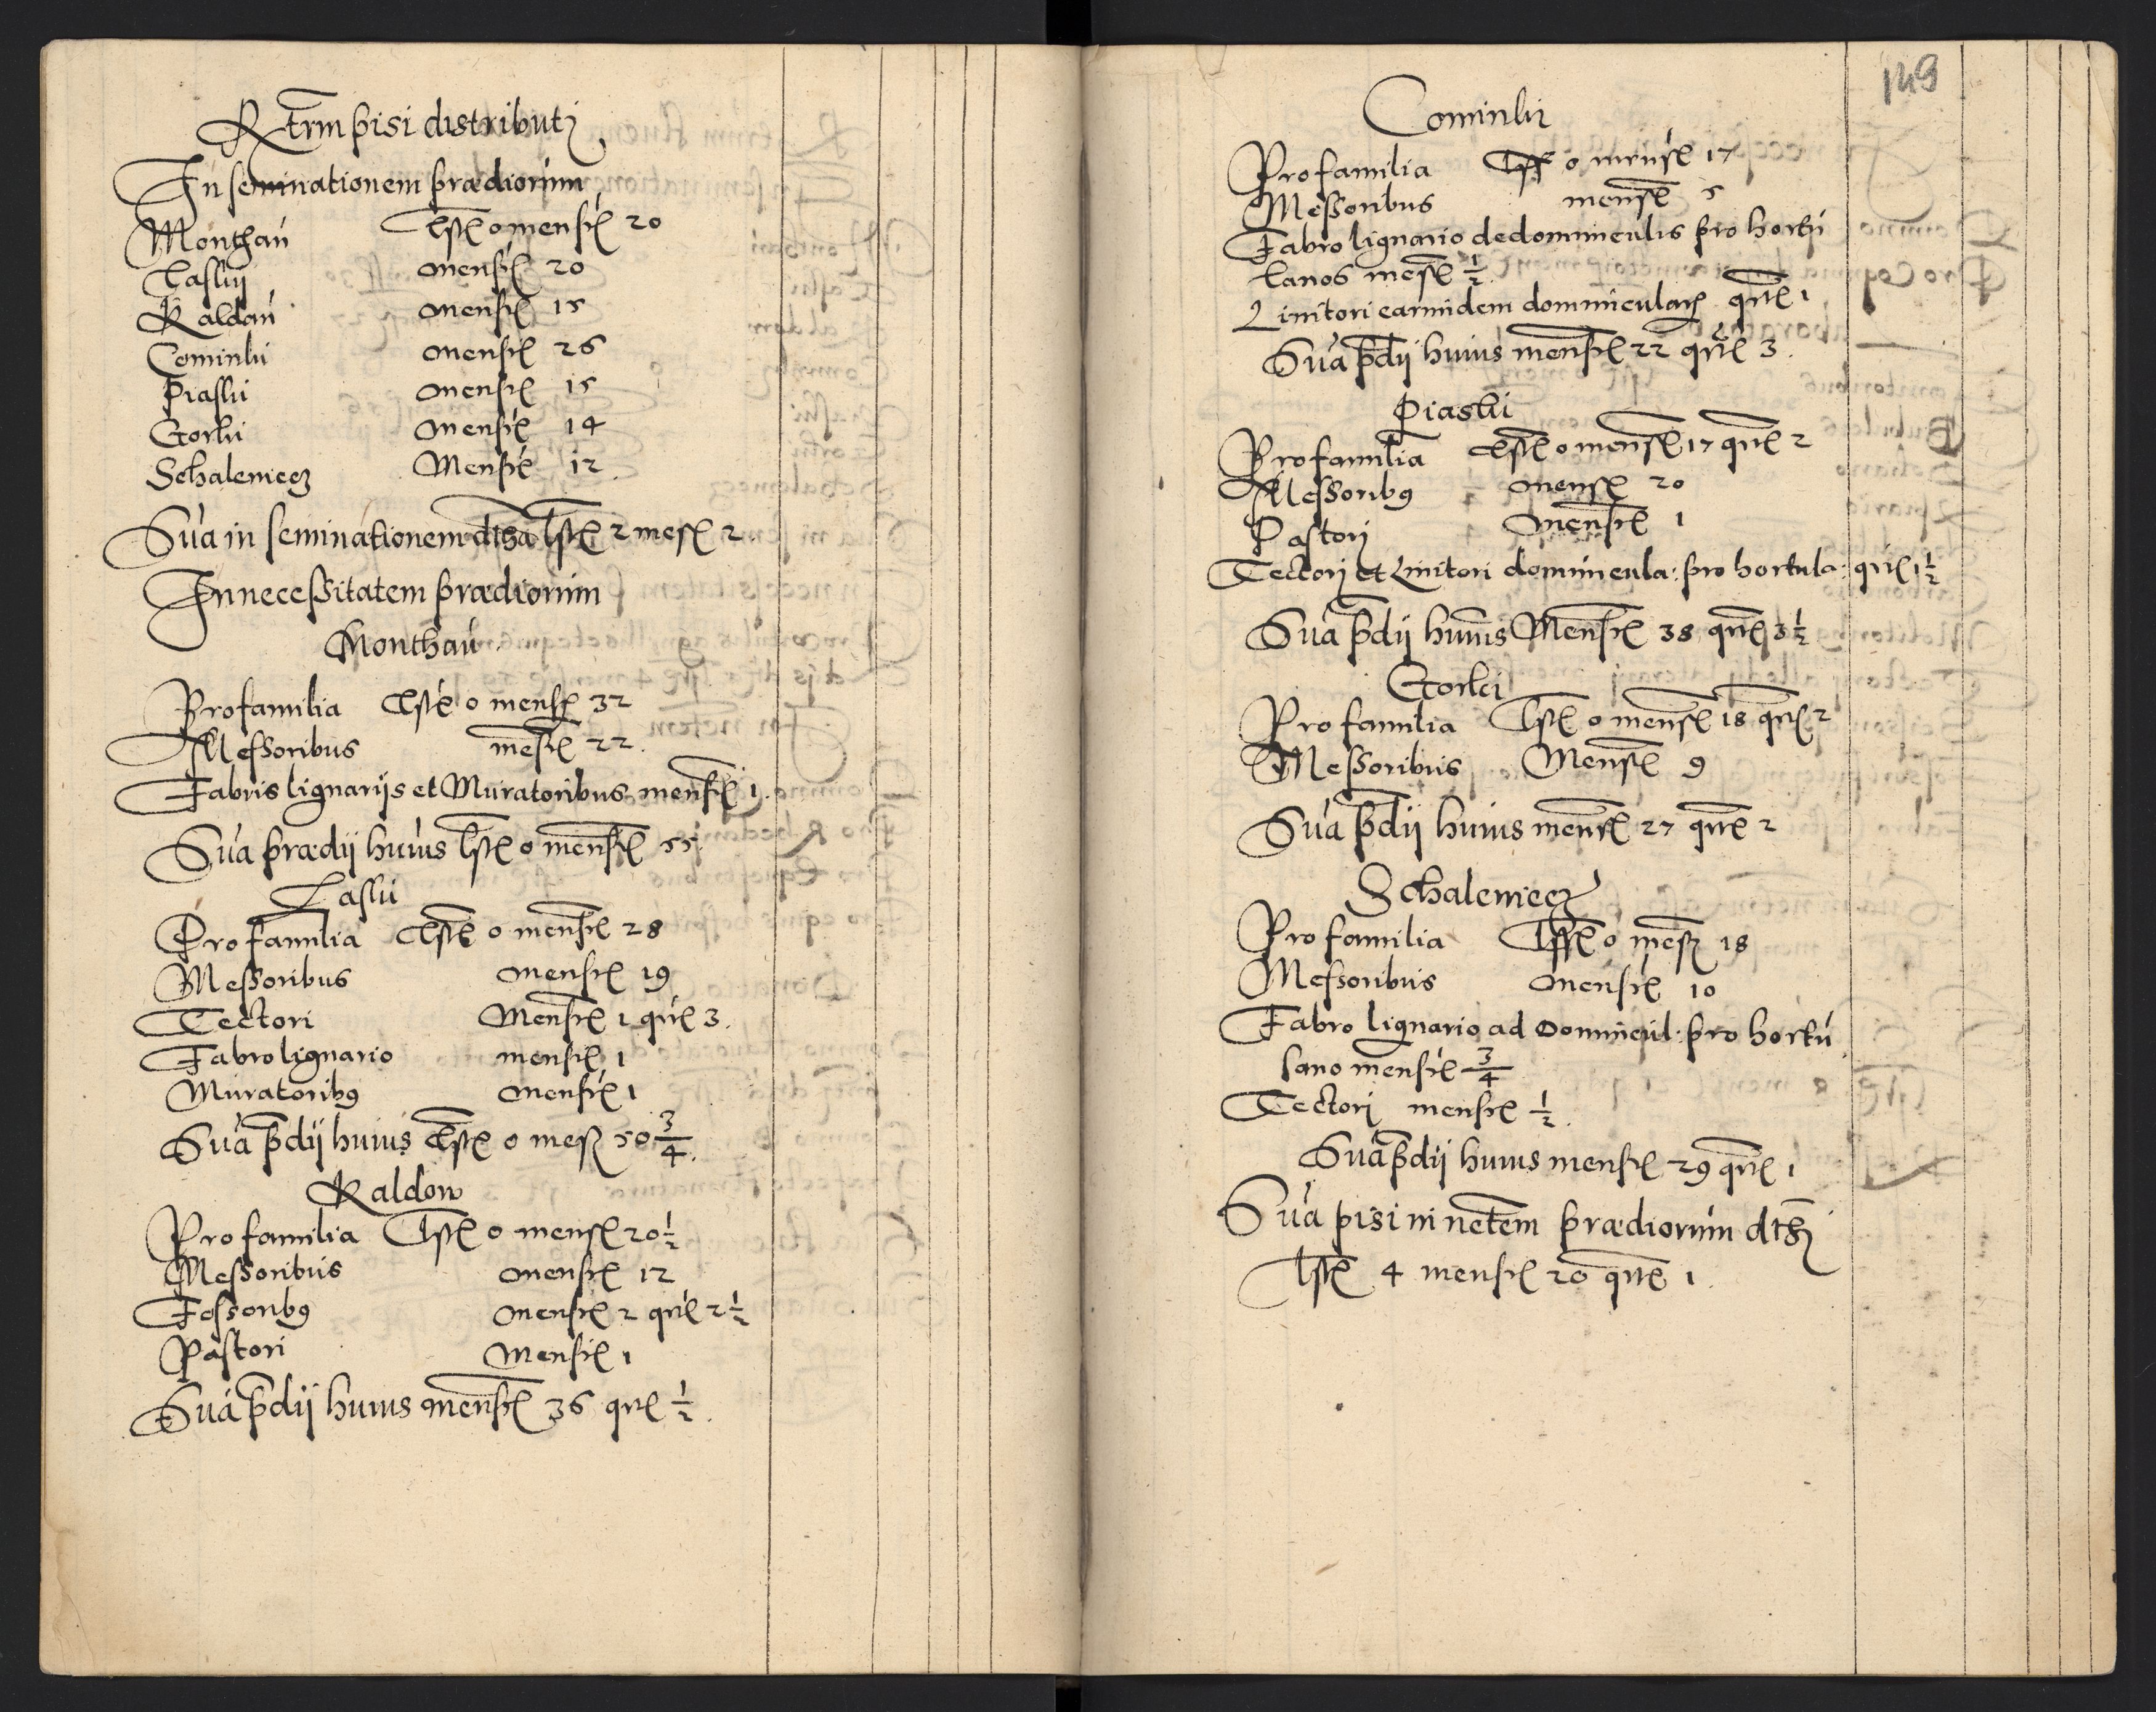 Rtrm pisi distributi
In seminationem prædiorum
Monthau Lstē o mensrē 20
Lassui mensrē 20
Kaldau mensrē 15
Cominki mensrē 26
Piaski mensrē 15
Gorki mensrē 14
Schalemecz Mensrē 12
Sua in seminationem dtha lstē 2 mesrē 2
In necessitatem prædiorum
Monthau
Pro familia Lstē o mensrē 32
Messoribus mesrē 22
Fabris lignarijs et Muratoribus mensrē 1
Sua prædij huius lstē o mensrē 55
Lassui
Pro familia Lstē o mensrē 28
Messoribus mensrē 19
Tectori Mensrē 1 qrtē 3
Fabro lignario mensrē 1
Muratorib9 mensrē 1
Sua pdij huius Lstē o mesrē 50 3/4
Kaldow
Pro familia Lstē o mensrē 20 1/2
Messoribus mensrē 12
Fossorib9 mensrē 2 qrtē 2 1/2
Pastori Mensrē 1
Sua pdij huius mensrē 36 qrtē 1/2
149
Cominki
Pro familia Lstē o mensrē 17
Messoribus mensrē 5
Fabro lignario de domunculis pro hortu
lanos mesrē 1/2
Linitori earundem domuncularū qrtē 1
Sua pdij huius mensrē 22 qrtē 3
Piaski
Pro familia Lstē o mensrē 17 qrtē 2
Messorib9 mensrē 20
Pastorj mensrē 1
Tectorj et Linitori domuncula: pro hortula: qrtē 1 1/2
Sua pdij huius Mensrē 38 qrtē 3 1/2
Gorki
Pro familia Lstē o mensrē 18 qrtē 2
Messoribus Mensrē 9
Sua pdij huius mensrē 27 qrtē 2
Schalemecz
Pro familia Lstē o mesrē 18
Messoribus mensrē 10
Fabro lignario ad Domuncul: pro hortu
lano mensrē 3/4
Tectorj mensrē 1/2
Sua pdij huius mensrē 29 qrtē 1
Sua pisi in netem prædiorum dthi
Lstē 4 mensrē 20 qrtē 1